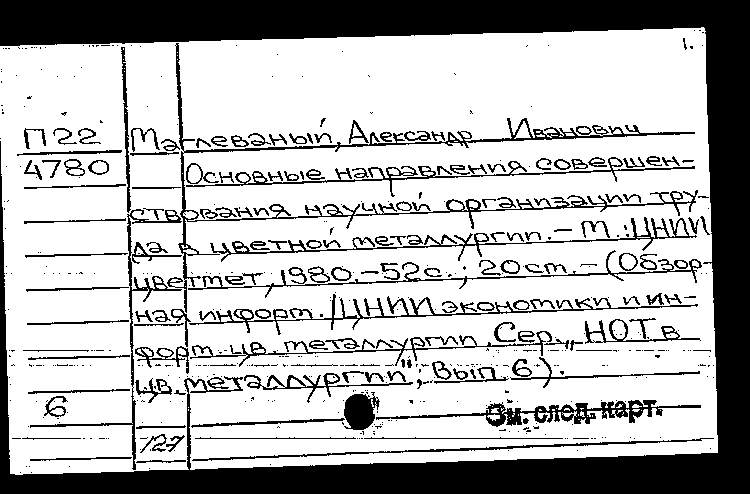 1.
П22 Маглеваный, Александр Иванович
4780 Основные направления совершен-
ствования научной организации тру-
да в цветной металлургии. – М. : ЦНИИ
цветмет, 1980. – 52 с. ; 20 см. – (Обзор-
ная информ. / ЦНИИ экономики и ин-
форм. цв. металлургии. Сер. „НОТ в
цв. металлургии"; Вып. 6).
6 Зм. след. карт.
127